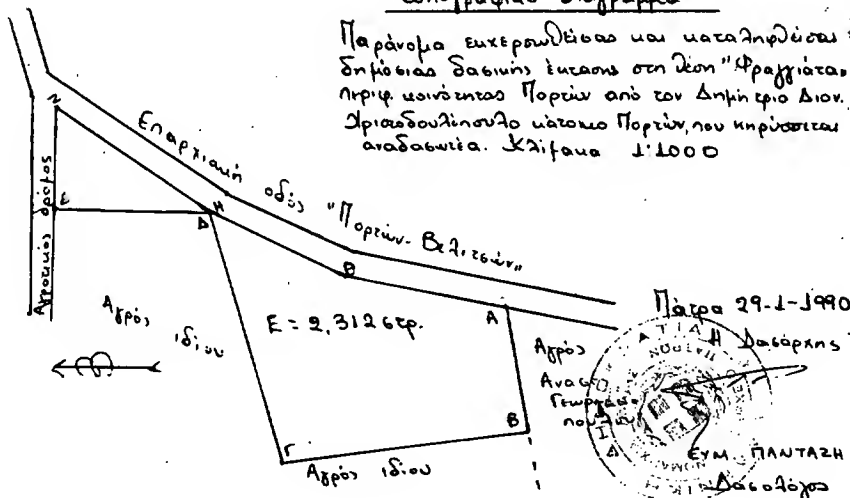 Παράνομα εκχερσωθείσας και καταληφθείσας
δημόσιας δασικής έκτασης στη θέση "Φραγγιάτα"
περιφ. κοινότητας Πορτών από τον Δημήτριο Διον.
Χριστοδουλόπουλο κάτοικο Πορτών, που κηρύσσεται
αναδασωτέα. Κλίμακα 1:1000
Επαρχιακή οδός "Πορτών-Βελιτσών"
Αγροτικός δρόμος
Ζ
Ε
Δ
Η
Θ
Α
Β
Γ
Αγρός ιδίου
Ε = 2,312 στρ.
Αγρός ιδίου
Αγρός
Αναστ.
Πάτρα 29-1-1990
Η Δασάρχης
ΕΥΜ. ΠΑΝΤΑΖΗ
Δασολόγος